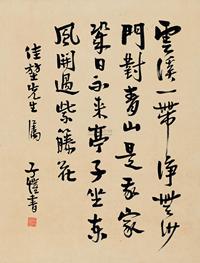 雲溪一帶淨無沙
門對青山是我家
日不来亭子坐東
風開過紫藤花
佳先生屬
子愷書